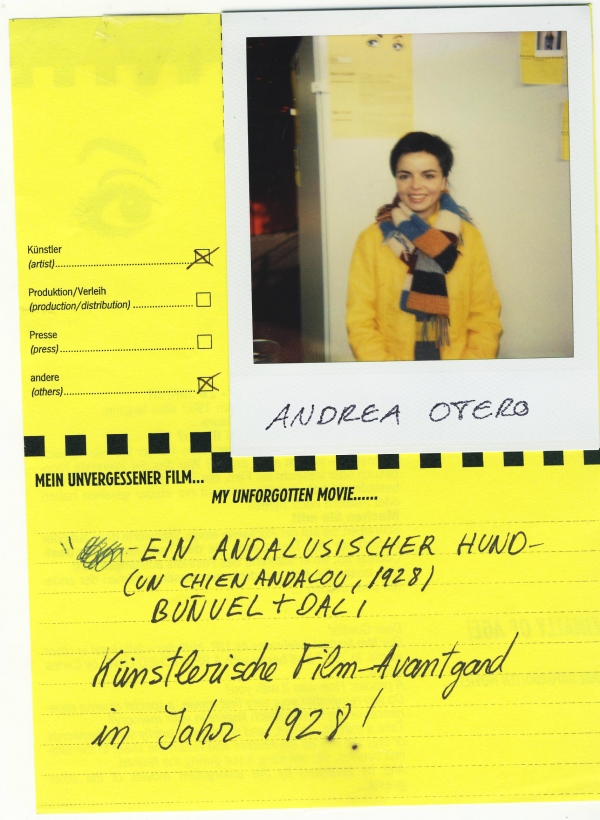 Künstler
(artist)
Produktion/Verleih
(production/distribution)
Presse
(press)
andere
(others)
ANDREA OTERO
MEIN UNVERGESSENER FILM...
MY UNFORGOTTEN MOVIE......
"-EIN ANDALUSISCHER HUND-
(UN CHIEN ANDALOU, 1928)
BUÑUEL + DALI
Künstlerische Film-Avantgard
in Jahr 1928!